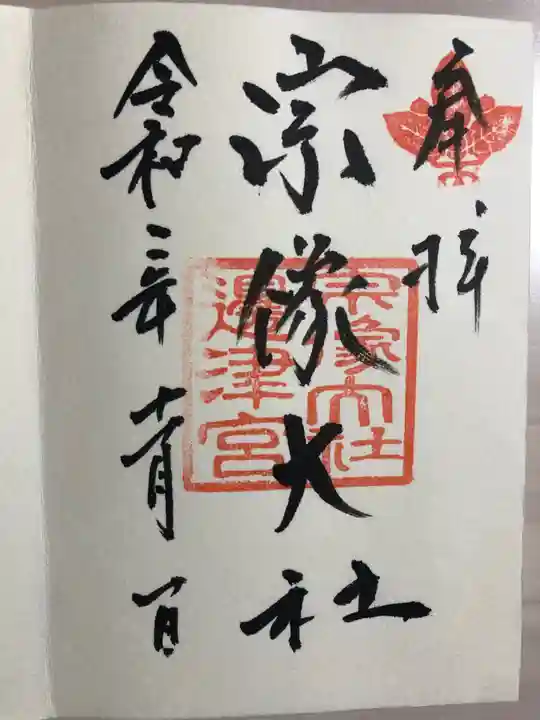 奉拝
宗像大社
宗像大社
邊津宮
令和二年十一月一日